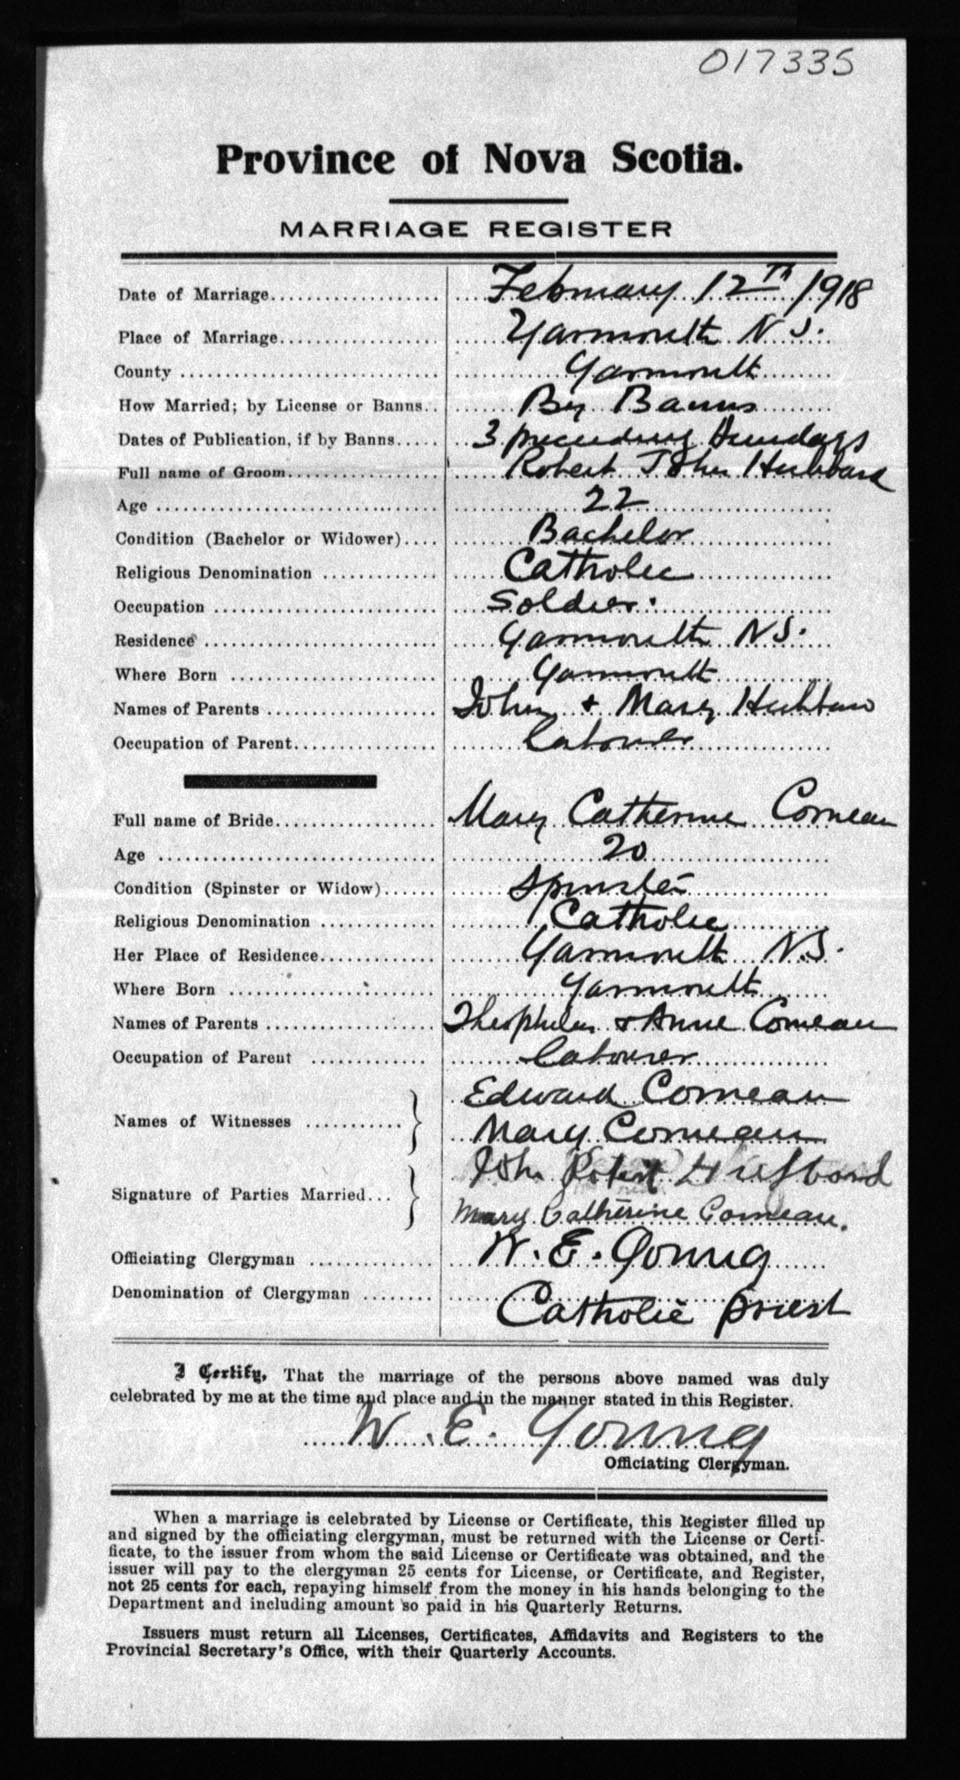 017335
Province of Nova Scotia.
MARRIAGE REGISTER
Date of Marriage................... February 12th 1918
Place of Marriage.................. Yarmouth N S.
County .............................. Yarmouth
How Married; by License or Banns.. By Banns
Dates of Publication, if by Banns..... 3 preceeding Sundays
Full name of Groom................. Robert John Hubbard
Age ................................ 22
Condition (Bachelor or Widower).... Bachelor
Religious Denomination ............. Catholic
Occupation ......................... Soldier.
Residence .......................... Yarmouth N S.
Where Born ........................ Yarmouth
Names of Parents ................... John + Mary Hubbard
Occupation of Parent................ Labourer
Full name of Bride.................. Mary Catherine Comeau
Age ................................ 20
Condition (Spinster or Widow)...... Spinster
Religious Denomination ............. Catholic
Her Place of Residence.............. Yarmouth N.S.
Where Born ........................ Yarmouth
Names of Parents ................... & Anne Comeau
Occupation of Parent ............. Labourer
Names of Witnesses ........... } Edward Comeau
Mary Comeau
Signature of Parties Married... } John Robert Hubbard
Mary Catherine Comeau.
Officiating Clergyman .............. W. E. Young
Denomination of Clergyman ........ Catholic Priest
I Certify, That the marriage of the persons above named was duly
celebrated by me at the time and place and in the manner stated in this Register.
W. E. Young
Officiating Clergyman.
When a marriage is celebrated by License or Certificate, this Register filled up
and signed by the officiating clergyman, must be returned with the License or Certi-
ficate, to the issuer from whom the said License or Certificate was obtained, and the
issuer will pay to the clergyman 25 cents for License, or Certificate, and Register,
not 25 cents for each, repaying himself from the money in his hands belonging to the
Department and including amount so paid in his Quarterly Returns.
Issuers must return all Licenses, Certificates, Affidavits and Registers to the
Provincial Secretary's Office, with their Quarterly Accounts.